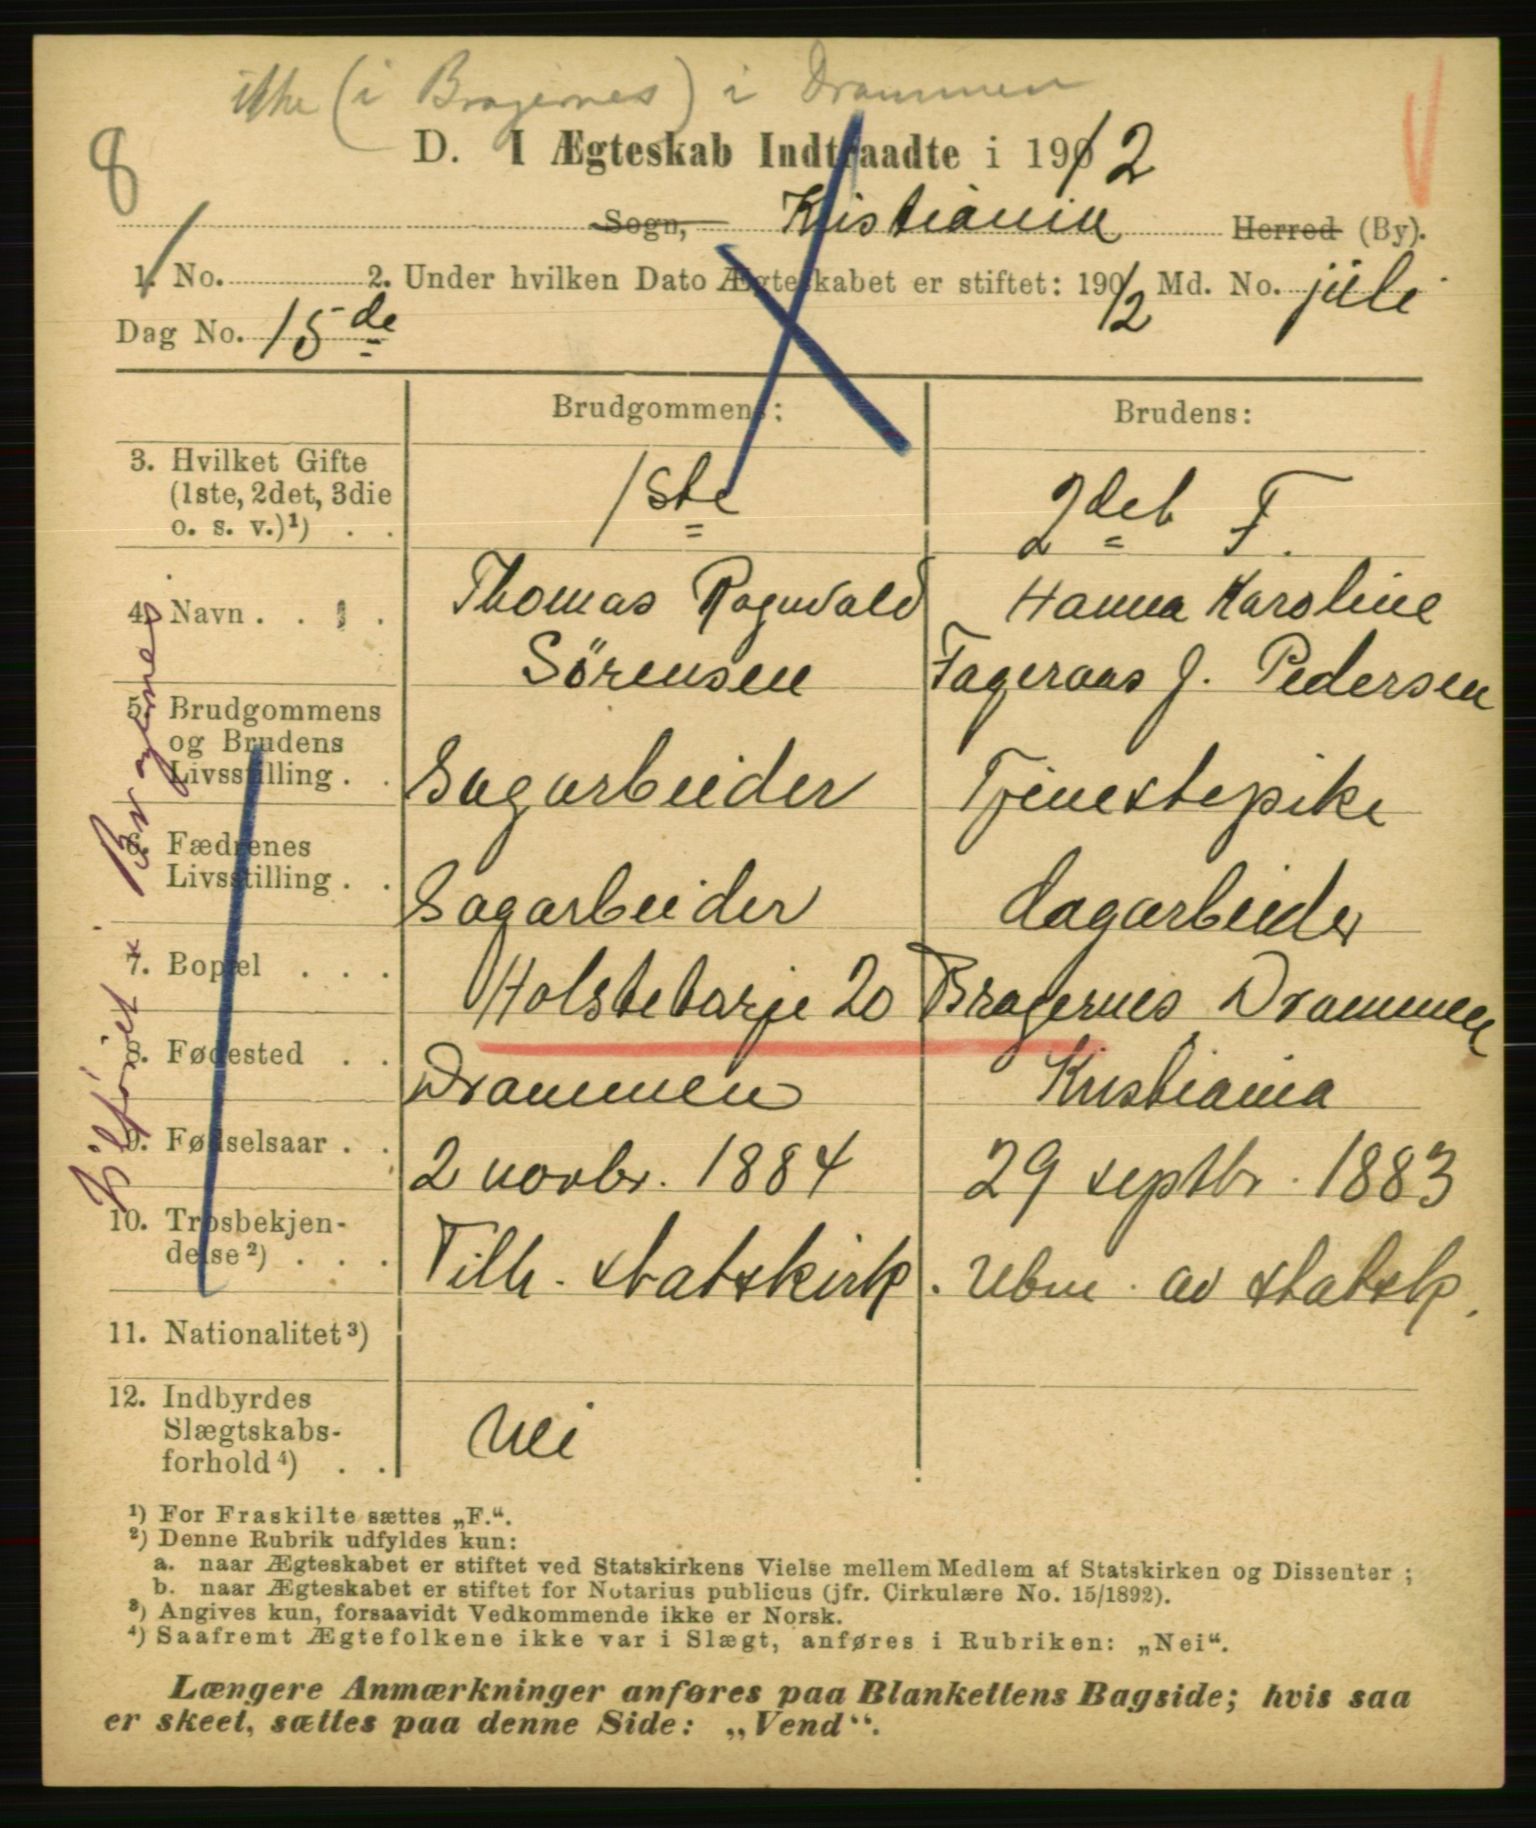 ikke (i Bragernes) i Drammen
8
D. I Ægteskab Indtraadte i 1912
Sogn, Kristiania Herred (By).
1. No. 2. Under hvilken Dato Ægteskabet er stiftet: 1912 Md. No. juli
Dag No. 15de
Brudgommens: Brudens:
3. Hvilket Gifte (1ste, 2det, 3die o. s. v.)¹) . . 1ste 2det F.
4. Navn . . . . Thomas Ragnvald Hanna Karoline
Sörensen Fageraas J. Pedersen
5. Brudgommens og Brudens Livsstilling . . Sagarbeider Tjenestepike
6. Fædrenes Livsstilling . . Sagarbeider dagarbeider
7. Bopæl . . . Holstetorje 20 Bragernes Drammen
8. Fødested . . Drammen Kristiania
9. Fødselsaar . . 2 novbr. 1884 29 septbr. 1883
10. Trosbekjendelse²) . . . Tilh. statskirk. Udm. av statsk.
11. Nationalitet³)
12. Indbyrdes Slægtskabsforhold⁴) . . Nei
Tilføiet Bragernes.
¹) For Fraskilte sættes „F.“.
²) Denne Rubrik udfyldes kun:
a. naar Ægteskabet er stiftet ved Statskirkens Vielse mellem Medlem af Statskirken og Dissenter ;
b. naar Ægteskabet er stiftet for Notarius publicus (jfr. Cirkulære No. 15/1892).
³) Angives kun, forsaavidt Vedkommende ikke er Norsk.
⁴) Saafremt Ægtefolkene ikke var i Slægt, anføres i Rubriken: „Nei“.
Længere Anmærkninger anføres paa Blankettens Bagside; hvis saa
er skeet, sættes paa denne Side: „Vend“.